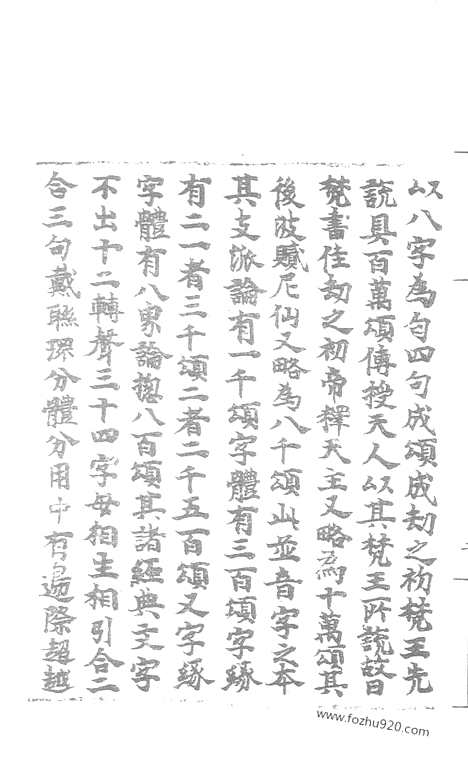 以八字為句四句成頌成劫之初梵王先
說具百萬頌傳授天人以其梵王所說故曰
梵書住劫之初帝釋天主又略為十萬頌其
後波膩尼仙又略為八千頌此並音字之本
其支派論有一千頌字體有三百頌字緣
有二一者三千頌二者二千五百頌又字緣
字體有八界論摠八百頌其諸經典文字
不出十二轉聲三十四字母相生相引合二
合三句戴聯環分體分用中有邊際超越
www.fozhu920.com